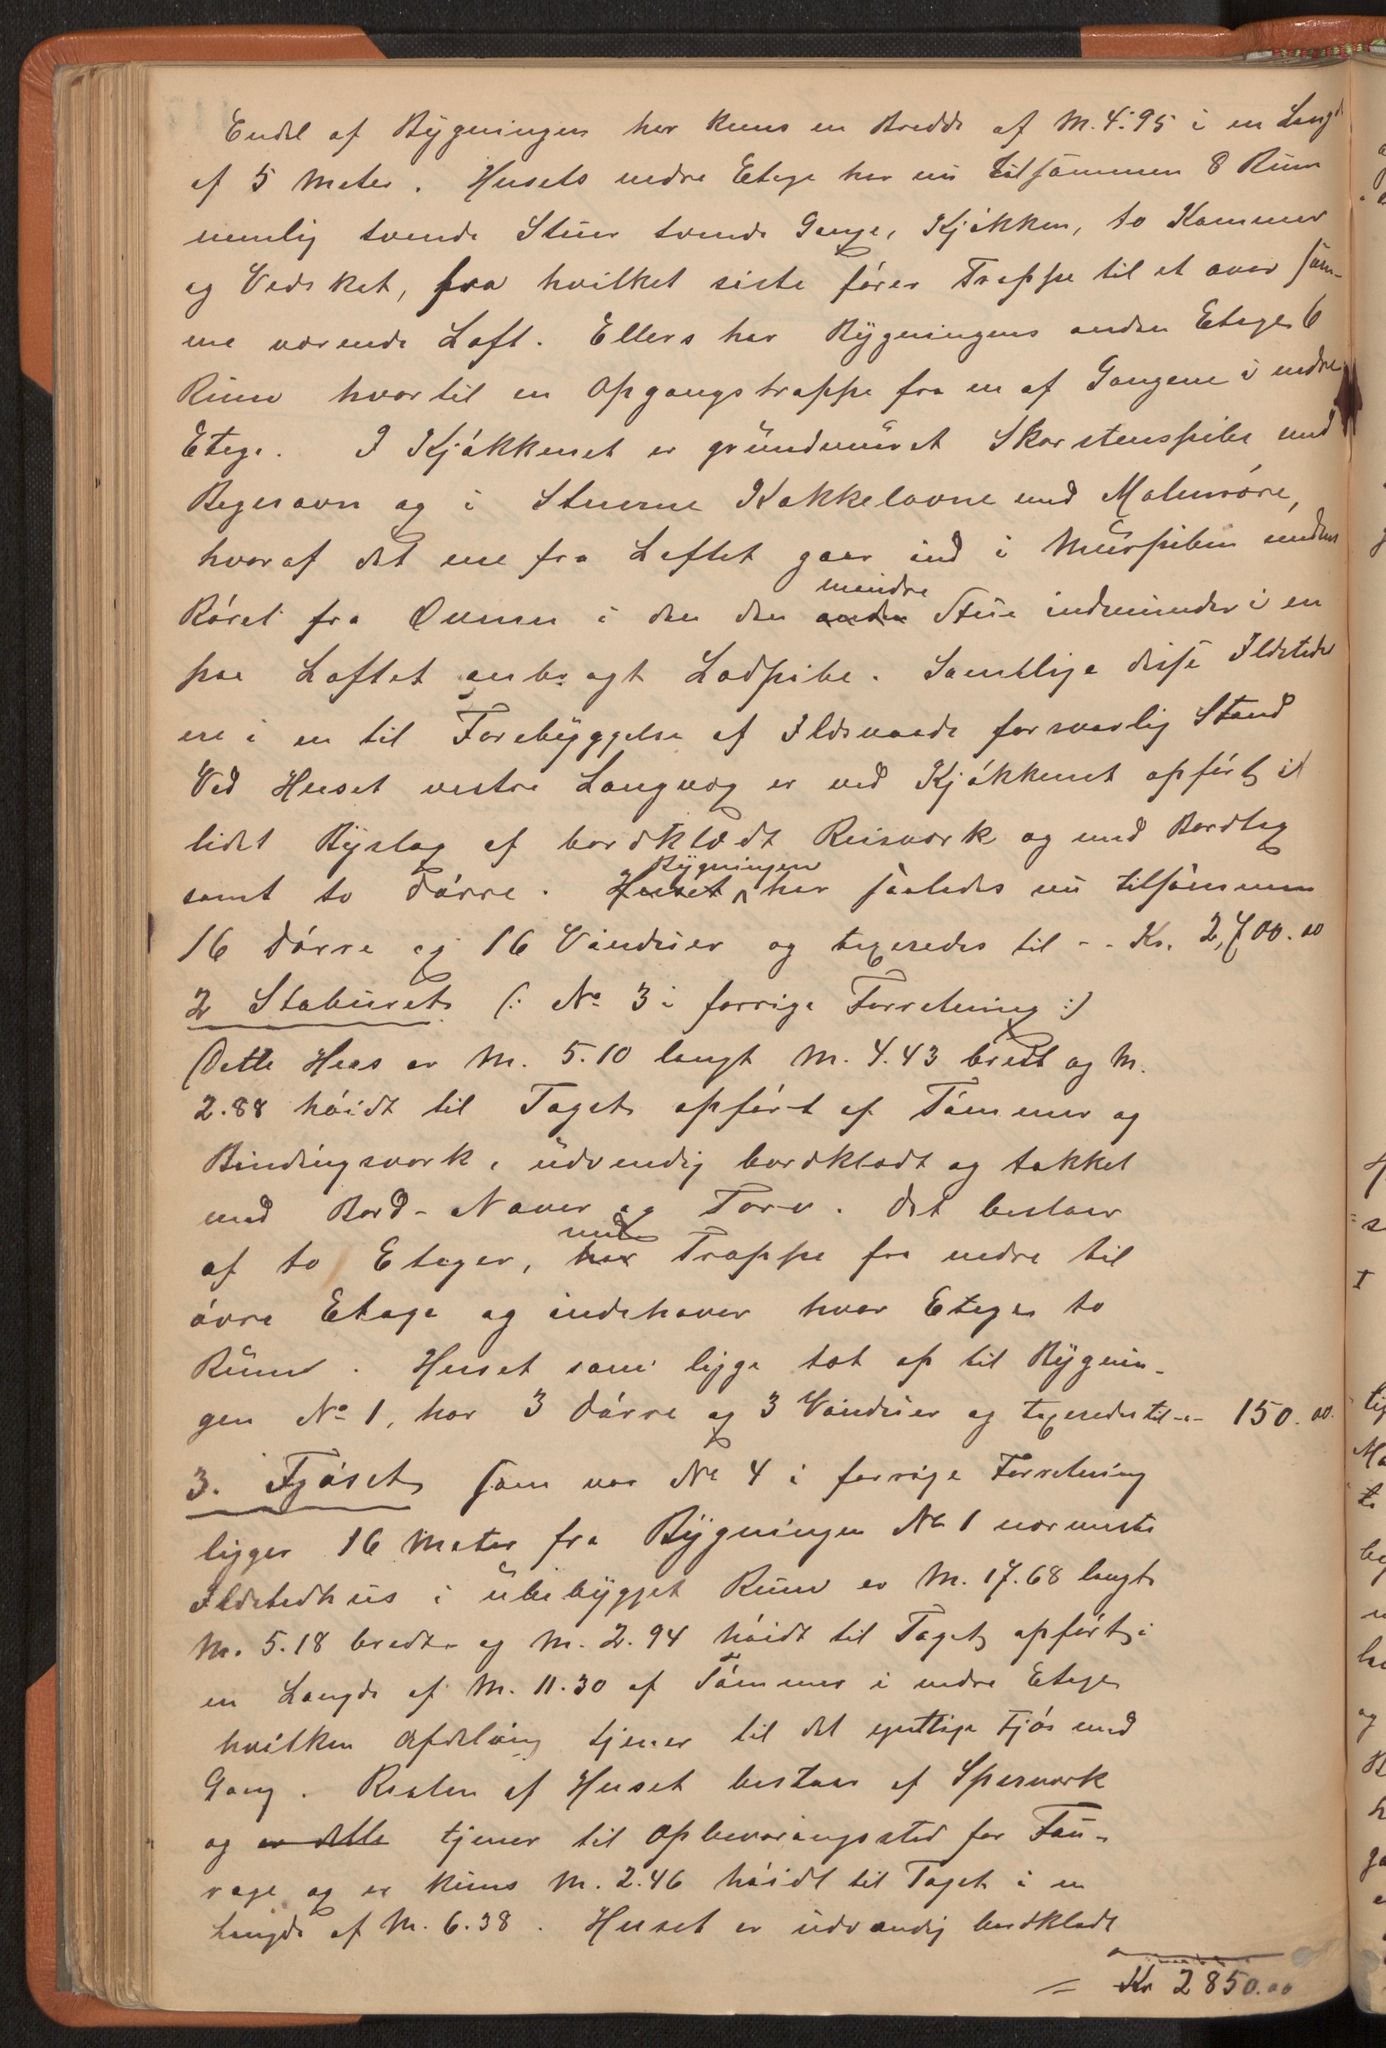 Endel af Bygningen har kuns en Bredde af M. 4.95 i en Længde
af 5 Meter. Husets nedre Etage har nu tilsammen 8 Rum
nemlig tvende Stuer tvende Gange, Kjøkken, to Kammer
og Vedsket, fra hvilket siste fører Trappe til et over sam-
me værende Loft. Ellers har Bygningens anden Etage 6
Rum hvortil en Opgangstrappe fra en af Gangene i nedre
Etage. I Kjøkkenet er grundmuret Skorstenspibe med
Bagerovn og i Stuerne Kakkelovne med Malmrøre,
hvoraf det ene fra Loftet gaar ind i Murpiben medens
Røret fra Ovnen i den den mindre Stue indmunder i en
paa Loftet anbragt Lodpibe. Samtlige disse Ildsteder
ere i en til Forebyggelse af Ildsvaade forsvarlig Stand
Ved Huset vestre Langvæg er ved Kjøkkenet opført et
lidet Byslag af bordklædt Reisværk og med Bordtag
samt to Dørre. Bygningen har saaledes nu tilsammen
16 Dørre og 16 Vinduer og taxeredes til -- Kr. 2,700.00
2 Staburet (: No 3 i forrige Forretning :)
Dette Huus er M. 5.10 langt M. 4.43 bredt og M.
2.88 høidt til Taget opført af Tømmer og
Bindingsværk, udvendig bordklædt og takket
med Bord- Næver og Torv. Det bestaar
af to Etager, med Trappe fra nedre til
øvre Etage og indehaver hver Etage to
Rum. Huset som ligge tæt op til Bygnin-
gen No 1, har 3 Dørre og 3 Vinduer og taxeredes til -- 150.00
3. Fjøset som var No 4 i forrige Forretning
ligger 16 Meter fra Bygningen No 1 nærmeste
Ildstedhus i ubebygget Rum er M. 17.68 langt
M. 5.18 bredt og M. 2.94 høidt til Taget opført i
en Længde af M. 11.30 af Tømmer i nedre Etage
hvilken Afdeling tjener til det egentlige Fjøs med
Gang. Resten af Huset bestaar af Sperværk
og er dette tjener til Opbevaringssted for Fou-
rage og er kuns M. 2.46 høidt til Taget i en
Længde af M. 6.38. Huset er udvendig bordklædt
= Kr 2850.00